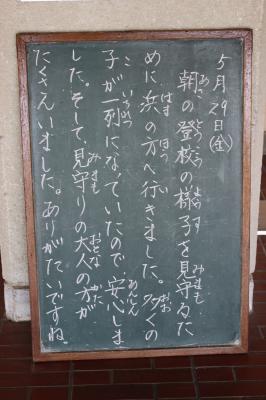 5月29日(金)
朝の登校の様子を見守るた
めに浜の方へ行きました。多くの
子が一列になっていたので安心しま
した。そして、見守りの大人の方が
たくさんいました。ありがたいですね。